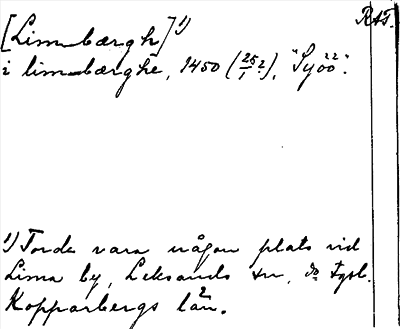 RAT.
[Limbærgh]¹⁾
i limbærghe, 1450 (25/1 2), "Syöö".
¹⁾ Torde vara någon plats vid
Lima by, Leksands sn,
Kopparbergs län.